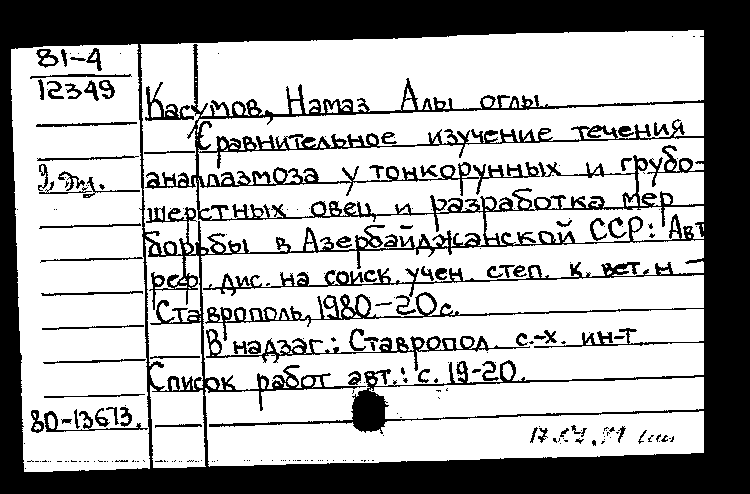 81-4
12349
Касумов, Намаз Алы оглы.
Сравнительное изучение течения
анаплазмоза у тонкорунных и грубо-
шерстных овец и разработка мер
борьбы в Азербайджанской ССР: Авт
реф. дис. на соиск. учен. степ. к. вет. н -
Ставрополь, 1980.-20с.
В надзаг.: Ставропол. с.-х. ин-т.
Список работ авт.: с. 19-20.
80-13673.